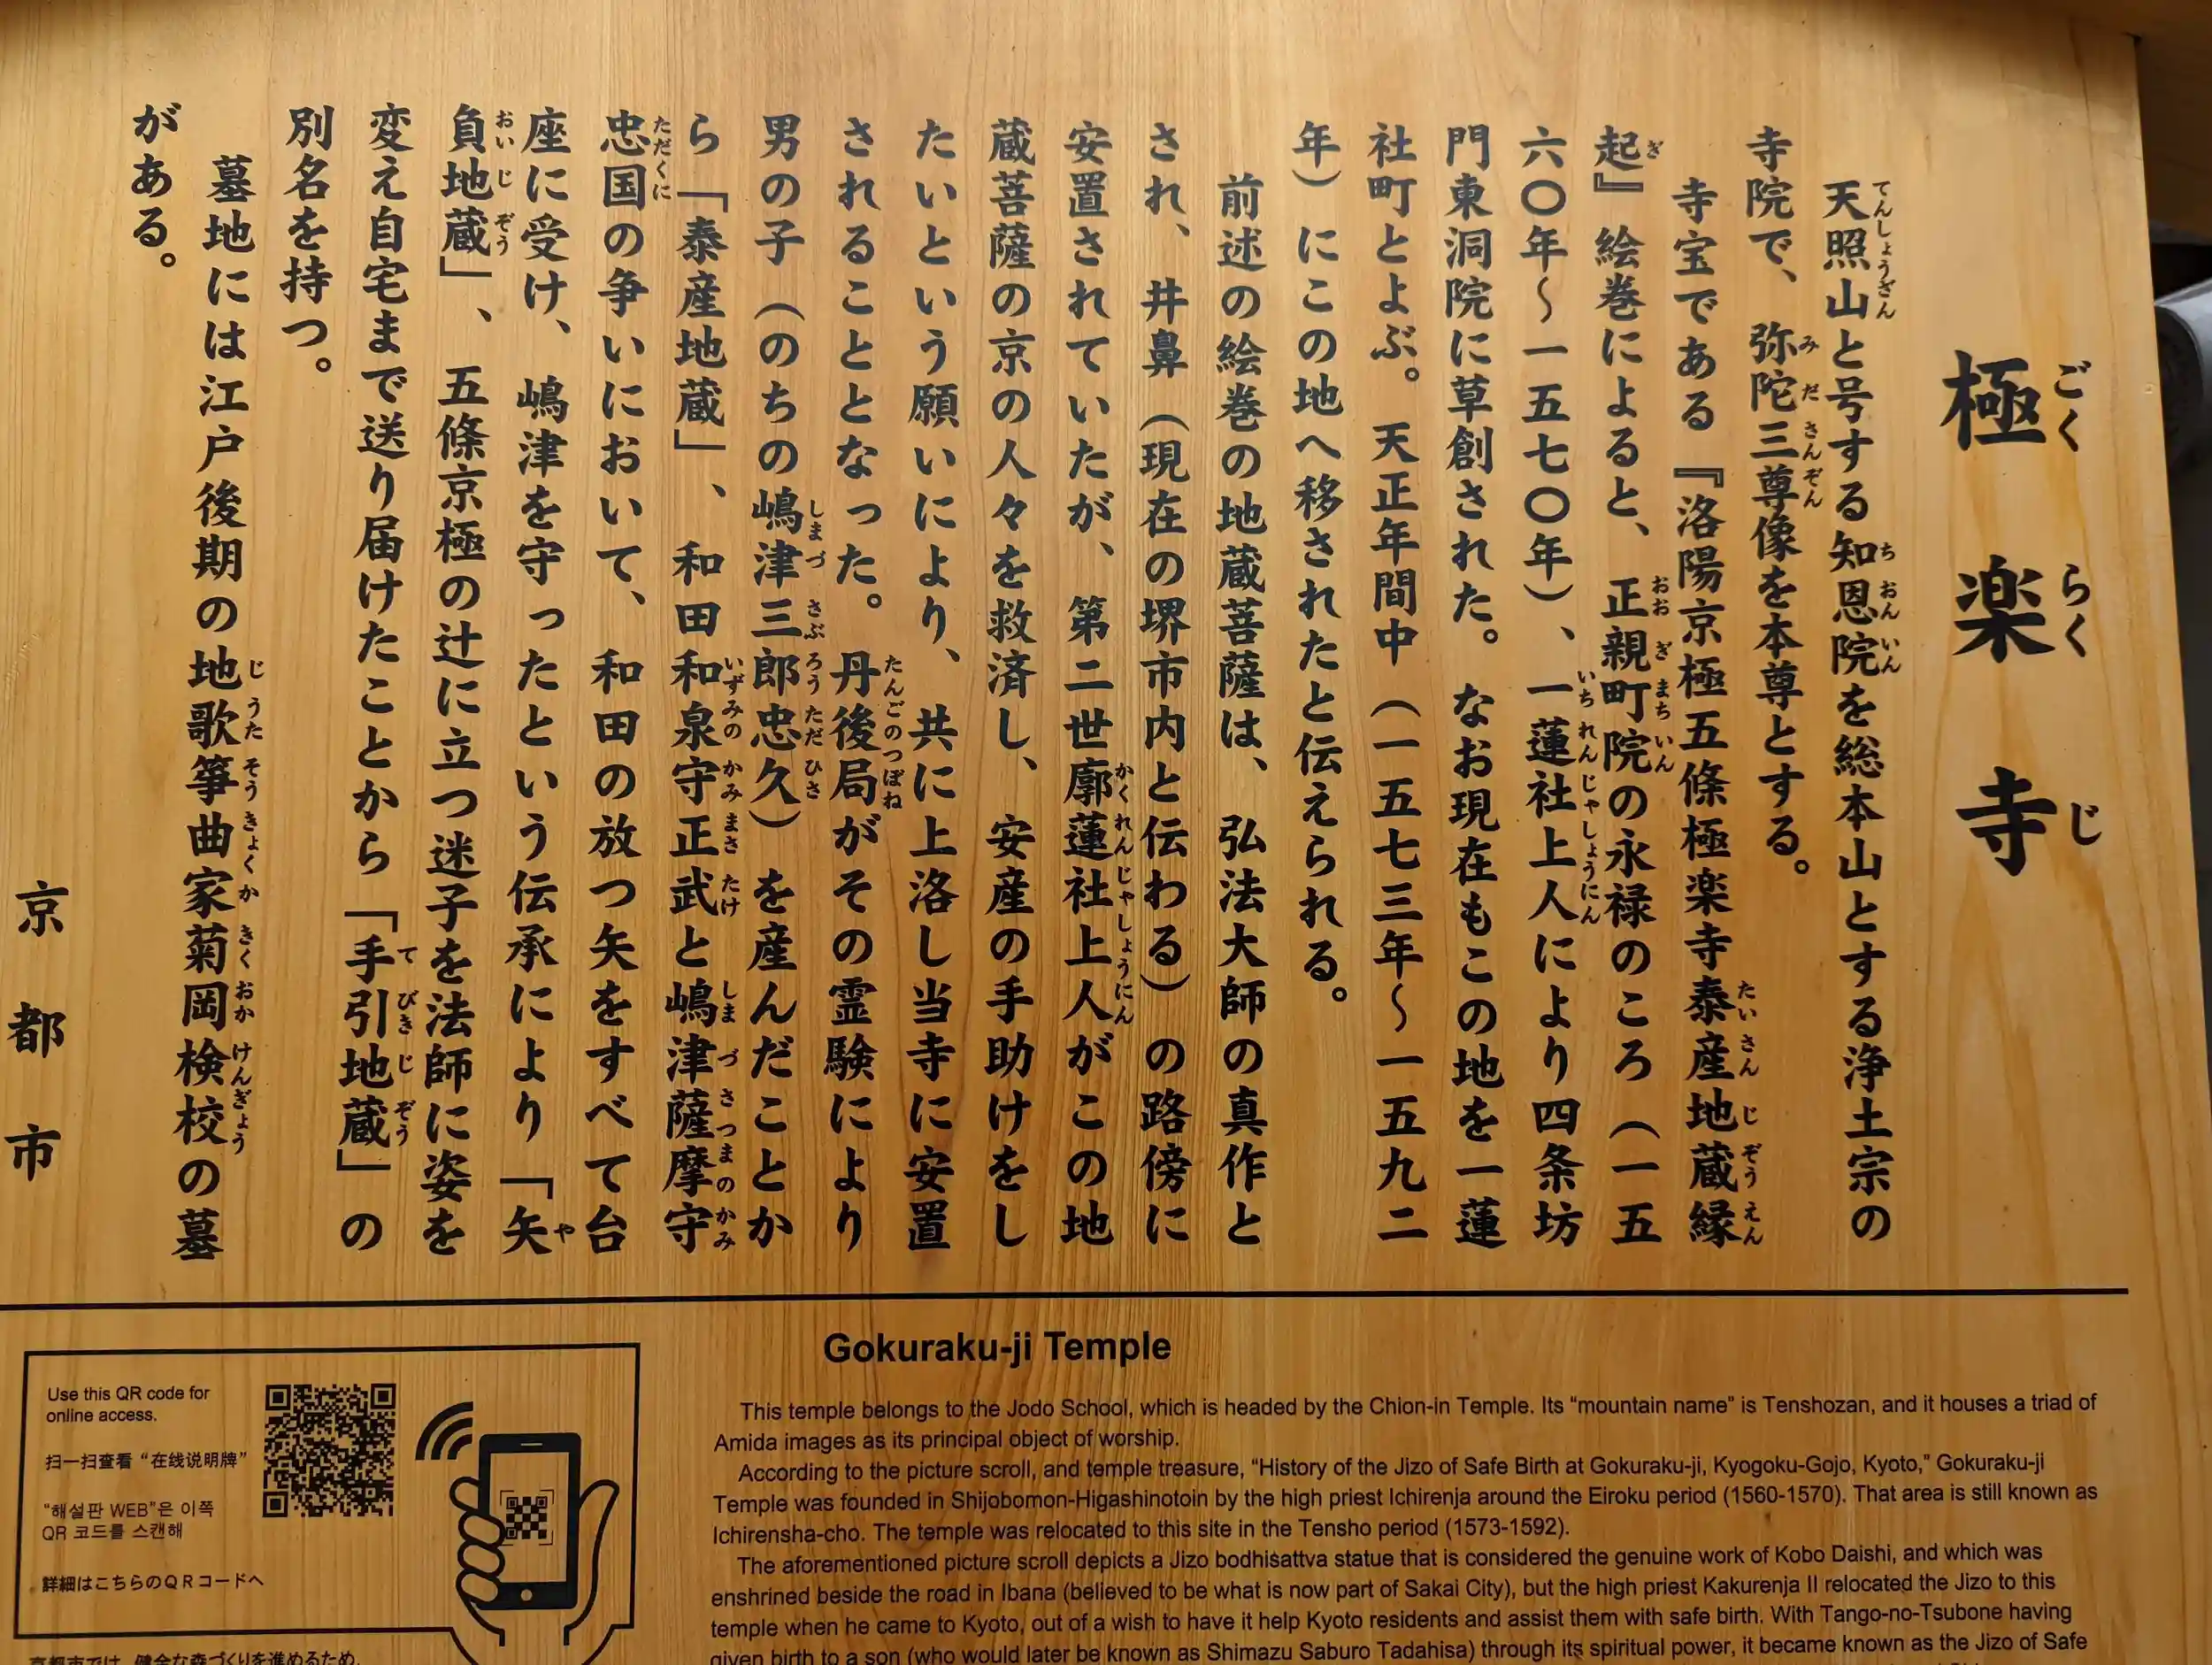 極楽寺
ごくらくじ
天照山と号する知恩院を総本山とする浄土宗の
てんしょうざん ちおんいん
寺院で、弥陀三尊像を本尊とする。
みださんぞん
寺宝である『洛陽京極五條極楽寺泰産地蔵縁
たいさんじぞうえん
起』絵巻によると、正親町院の永禄のころ(一五
ぎ おおぎまちいん
六〇年～一五七〇年)、一蓮社上人により四条坊
いちれんじゃしょうにん
門東洞院に草創された。なお現在もこの地を一蓮
社町とよぶ。天正年間中(一五七三年～一五九二
年)にこの地へ移されたと伝えられる。
前述の絵巻の地蔵菩薩は、弘法大師の真作と
され、井鼻(現在の堺市内と伝わる)の路傍に
安置されていたが、第二世廓蓮社上人がこの地
かくれんじゃしょうにん
蔵菩薩の京の人々を救済し、安産の手助けをし
たいという願いにより、共に上洛し当寺に安置
されることとなった。丹後局がその霊験により
たんごのつぼね
男の子(のちの嶋津三郎忠久)を産んだことか
しまづさぶろうただひさ
ら「泰産地蔵」、和田和泉守正武と嶋津薩摩守
いずみのかみまさたけ しまづさつまのかみ
忠国の争いにおいて、和田の放つ矢をすべて台
ただくに
座に受け、嶋津を守ったという伝承により「矢
や
負地蔵」、五條京極の辻に立つ迷子を法師に姿を
おいじぞう
変え自宅まで送り届けたことから「手引地蔵」の
てびきじぞう
別名を持つ。
墓地には江戸後期の地歌箏曲家菊岡検校の墓
じうたそうきょくか きくおかけんぎょう
がある。
京都市
Gokuraku-ji Temple
This temple belongs to the Jodo School, which is headed by the Chion-in Temple. Its “mountain name” is Tenshozan, and it houses a triad of
Amida images as its principal object of worship.
According to the picture scroll, and temple treasure, “History of the Jizo of Safe Birth at Gokuraku-ji, Kyogoku-Gojo, Kyoto,” Gokuraku-ji
Temple was founded in Shijobomon-Higashinotoin by the high priest Ichirenja around the Eiroku period (1560-1570). That area is still known as
Ichirensha-cho. The temple was relocated to this site in the Tensho period (1573-1592).
The aforementioned picture scroll depicts a Jizo bodhisattva statue that is considered the genuine work of Kobo Daishi, and which was
enshrined beside the road in Ibana (believed to be what is now part of Sakai City), but the high priest Kakurenja II relocated the Jizo to this
temple when he came to Kyoto, out of a wish to have it help Kyoto residents and assist them with safe birth. With Tango-no-Tsubone having
given birth to a son (who would later be known as Shimazu Saburo Tadahisa) through its spiritual power, it became known as the Jizo of Safe
Use this QR code for
online access.
扫一扫查看“在线说明牌”
“해설판 WEB”은 이쪽
QR 코드를 스캔해
詳細はこちらのQRコードへ
京都市では、健全な森づくりを進めるため、